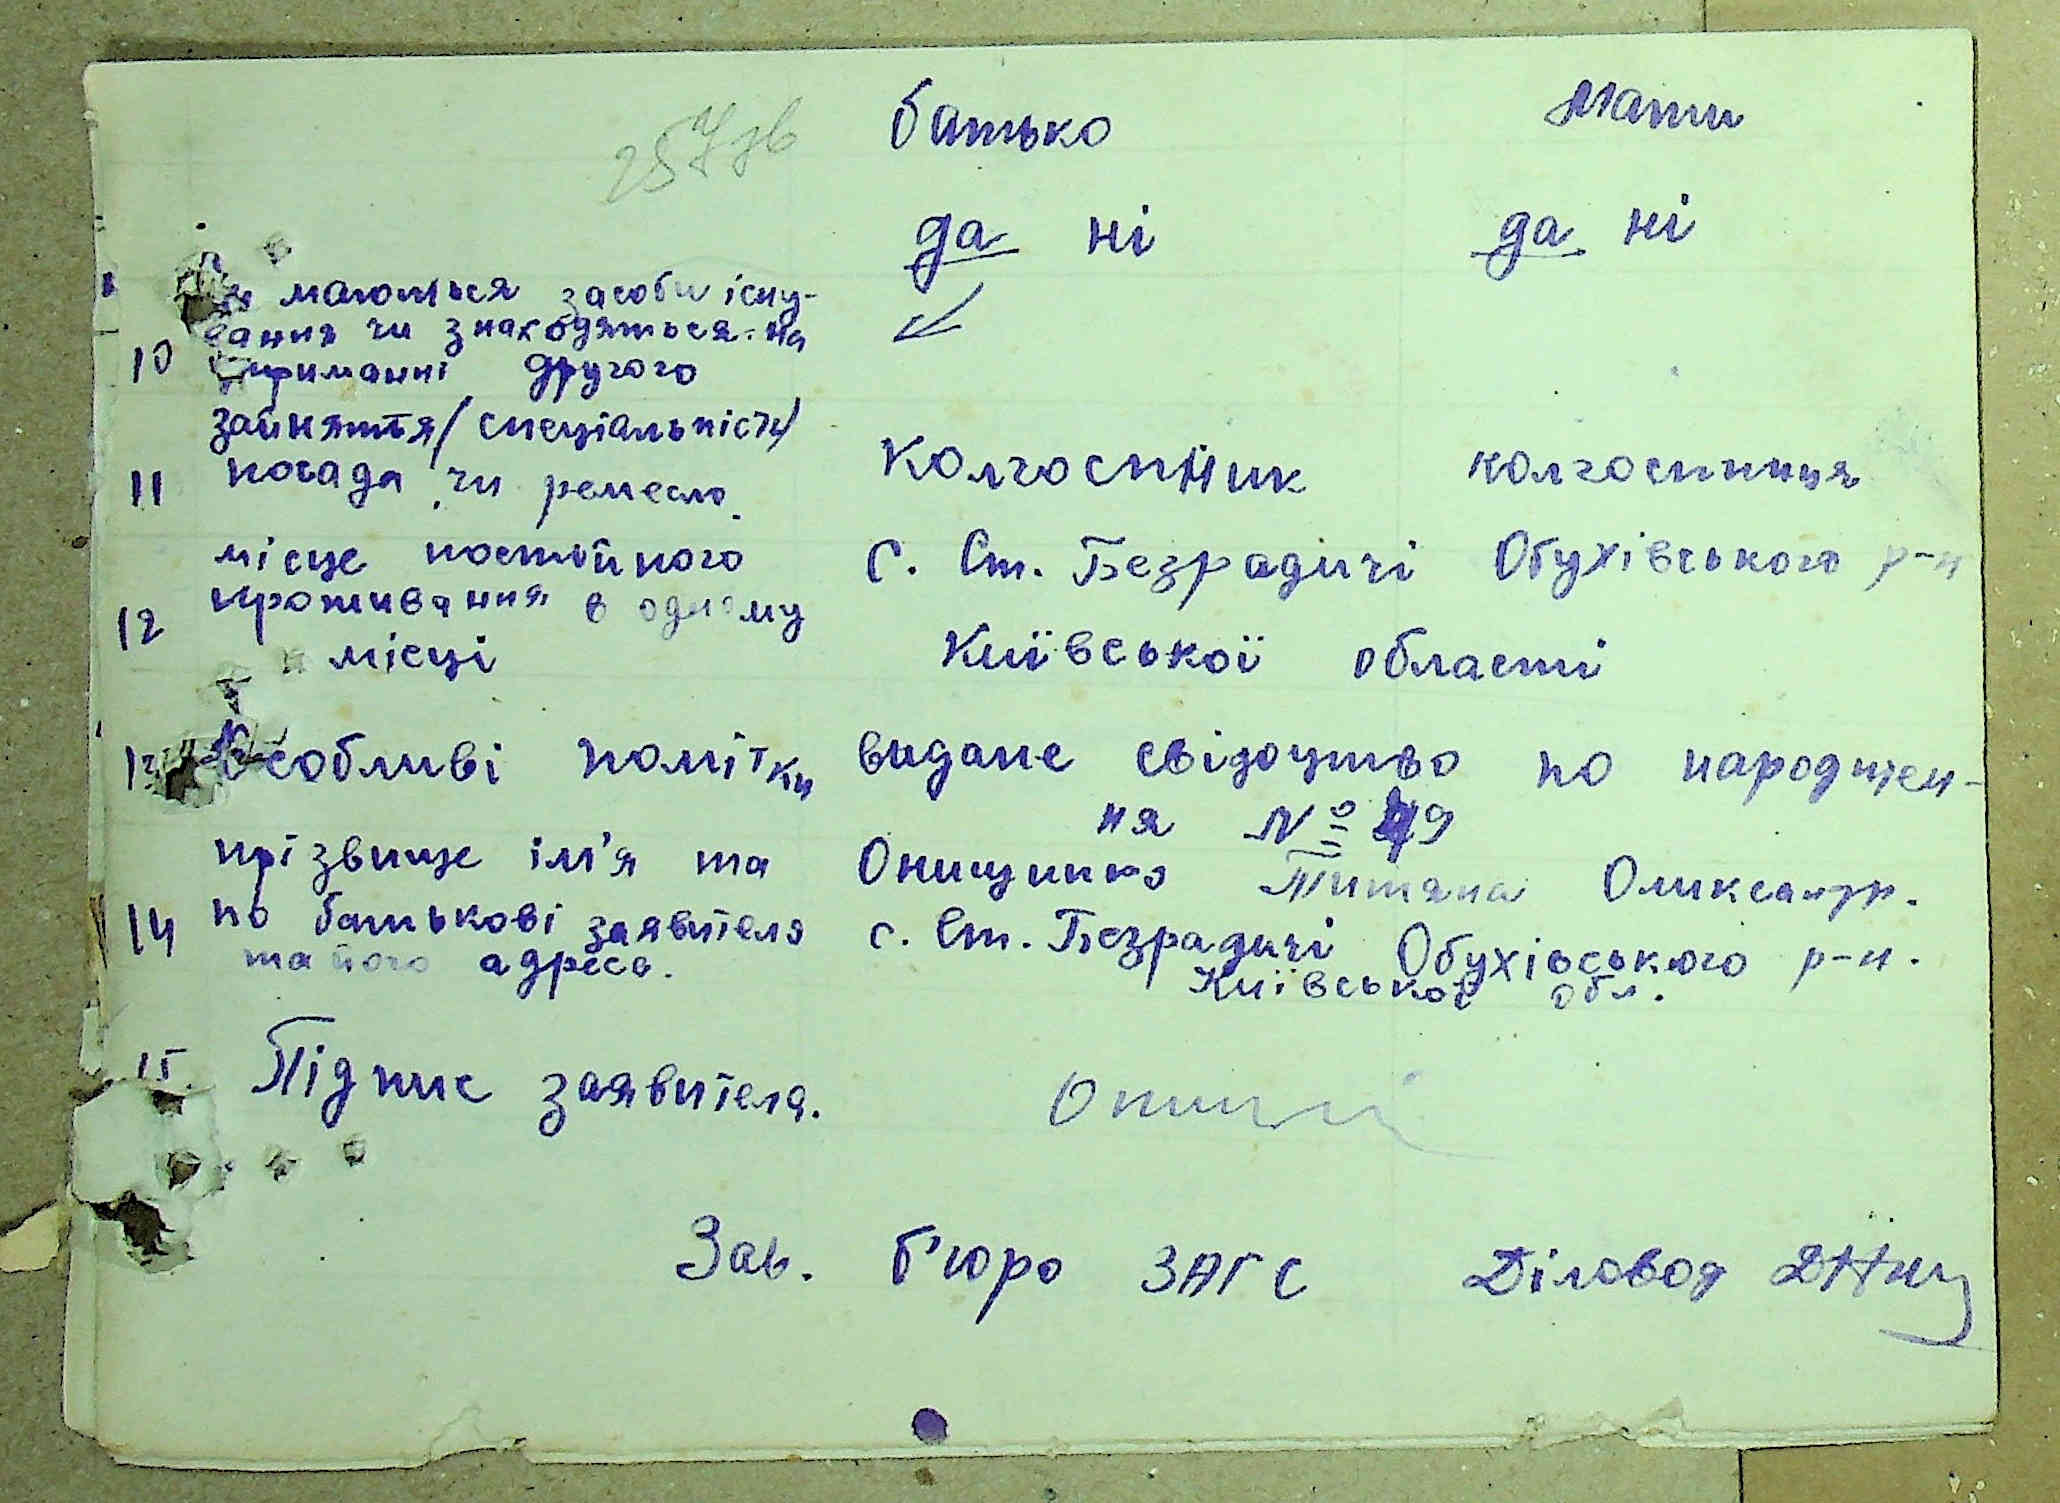 батько мати
257зв
да ні да ні
маються засоби існу-
вання чи знаходяться на
10 утриманні другого
зайняття (спеціальність)
11 посада чи ремесло. Колгоспник колгоспниця
місце постійного с. Ст. Безрадичі Обухівського р-н
12 проживання в одному
місці Київської області
13 Особливі помітки видане свідоцтво по народжен-
ня № 49
прізвище ім'я та Онищенко Титяна Олександр.
14 по батькові заявителя с. Ст. Безрадичі Обухівського р-н.
та його адреса. Київської обл.
15. Підпис заявителя.
Зав. б'юро ЗАГС Діловод